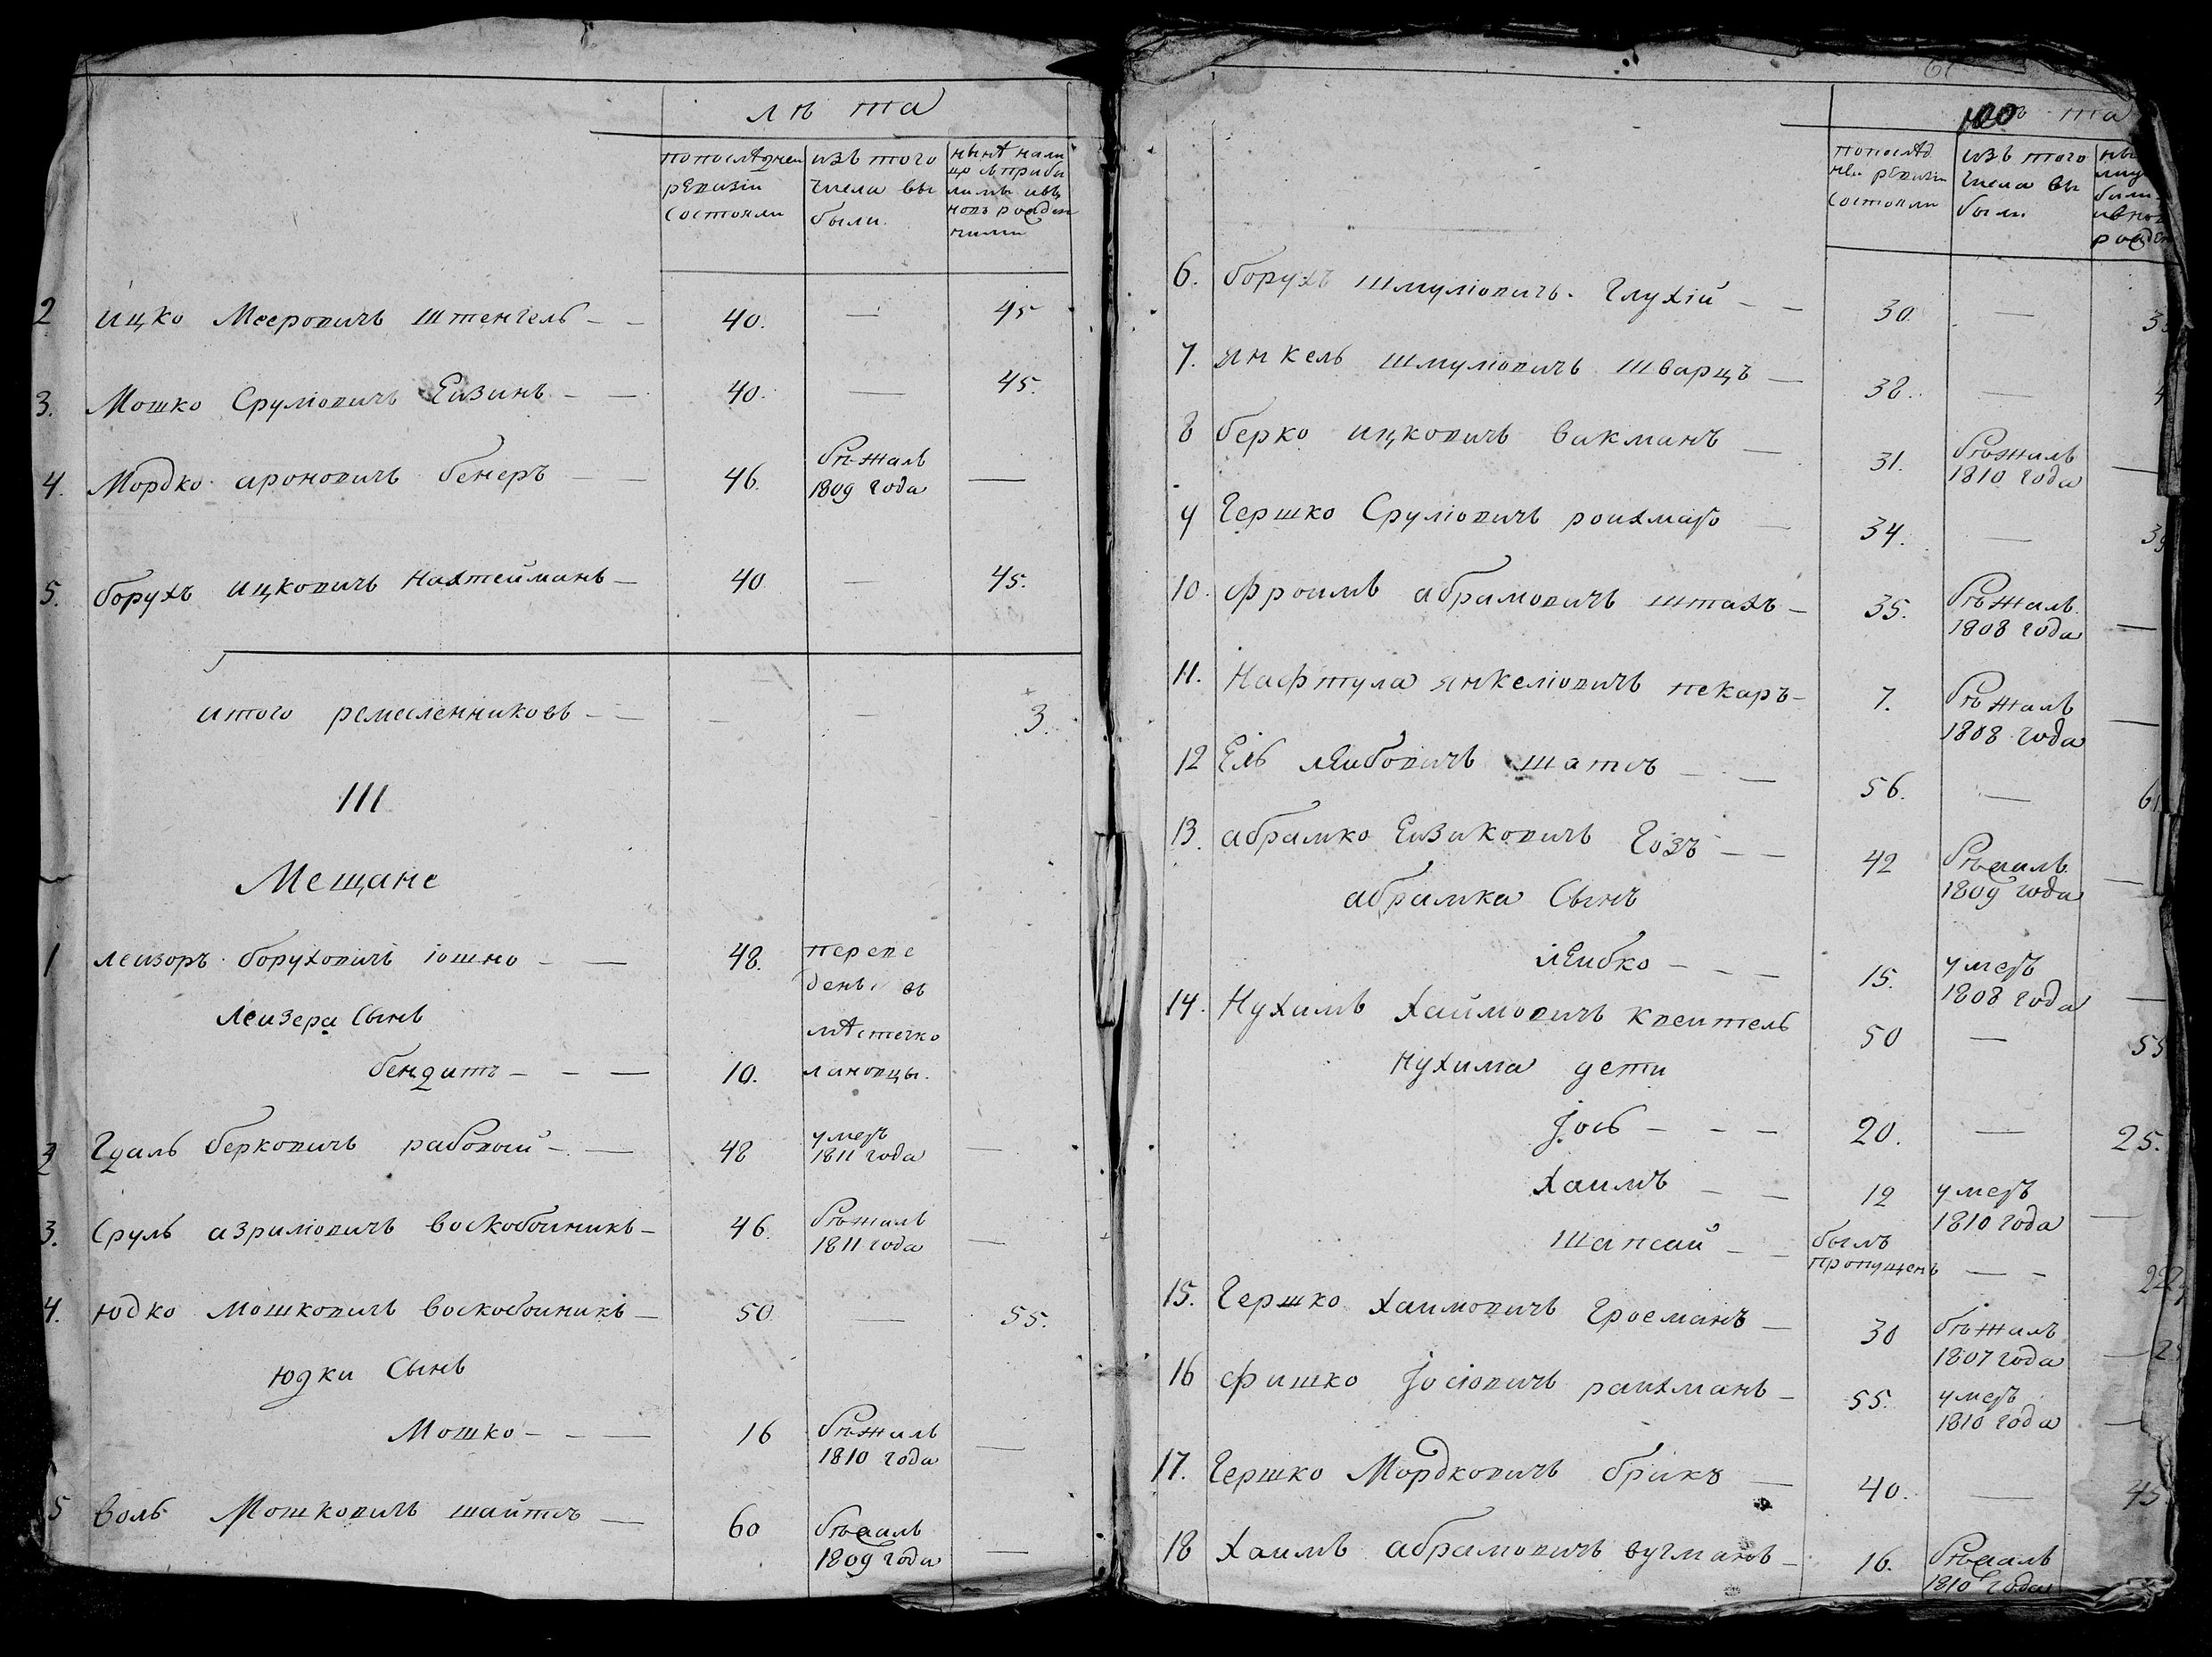 лѣта
попослѣдней ревизіи состояли
изъ того числа выбыли
2 ицко Мееровичъ Штенгель — 40. — 45
3. Мошко Сруліовичъ Еизинъ — 40. — 45.
4. Мордко ароновичъ бенеръ — 46. бѣжалъ 1809 года —
5. борухъ ицковичъ нахтейманъ — 40 — 45.
итого ремесленниковъ — — — 3.
III
Мещане
1 леизоръ боруховичъ — 48. переведенъ въ
Леизера Сынъ мѣстечко
бендитъ — — — 10. лановцы.
2 Гдаль берковичъ рабовый — 48 умеръ 1811 года —
3. Сруль азриліовичъ воскобоиникъ — 46. бѣжалъ 1811 года —
4. юдко мошковичъ воскобоиникъ — 50. — 55.
юдки Сынъ
Мошко — — 16 бѣжалъ 1810 года —
5 воль Мошковичъ шайтсъ — 60 бѣжалъ 1809 года —
100 та
попослѣдней ревизіи состояли
изъ того числа выбыли
6. борухъ шмуліовичъ глухій — — 30. —
7. янкель шмуліовичъ шварцъ — 38. —
8 берко ицковичъ викманъ — 31. бѣжалъ 1810 года —
9 Гершко Сруліовичъ роихмаръ — 34. — 39
10. Фроимъ абрамовичъ штахъ — 35. бѣжалъ 1808 года —
11. Нафтула янкеліовичъ пекаръ — 7. бѣжалъ 1808 года —
12 Ель леибовичъ шатсъ — — 56. — 61
13. абрамко Еизиковичъ гозъ — — 42 бѣжалъ 1809 года —
абрамка Сынъ
леибко — — — 15. умеръ 1808 года —
14. Нухимъ Хаймовичъ квеитель 50 — 55
нухима дети
Іось — — — 20. — 25.
Хаимъ — — 12 умеръ 1810 года —
Шапсай — — былъ пропущенъ — —
15. Гершко хаимовичъ гросманъ — 30 бѣжалъ 1807 года —
16 Фишко Іосіовичъ раихманъ — 55. умеръ 1810 года —
17. Гершко Мордковичъ брикъ — 40. — 45
18 Хаимъ абрамовичъ вугманъ — 16. бѣжалъ 1810 года